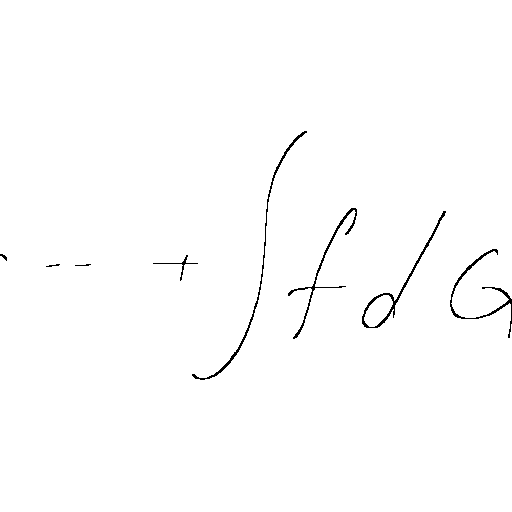 -- + ∫ f d G